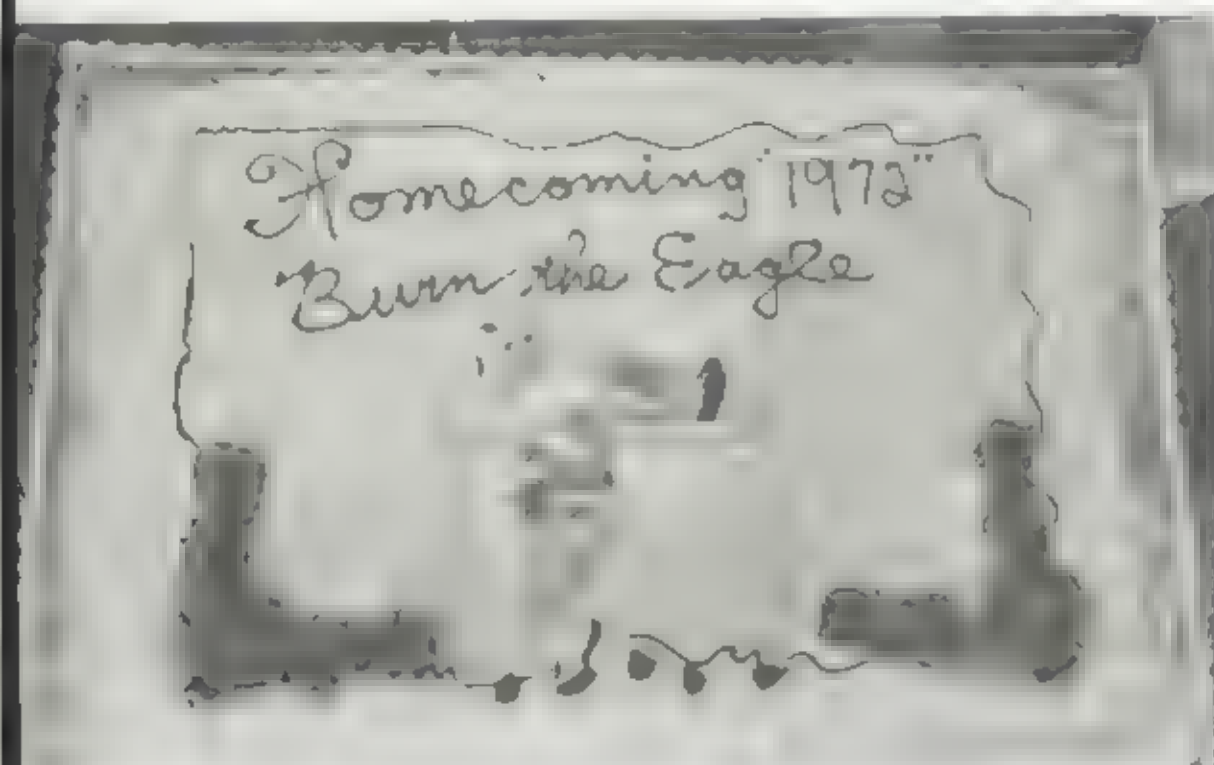 Homecoming "1972"
Burn the Eagle